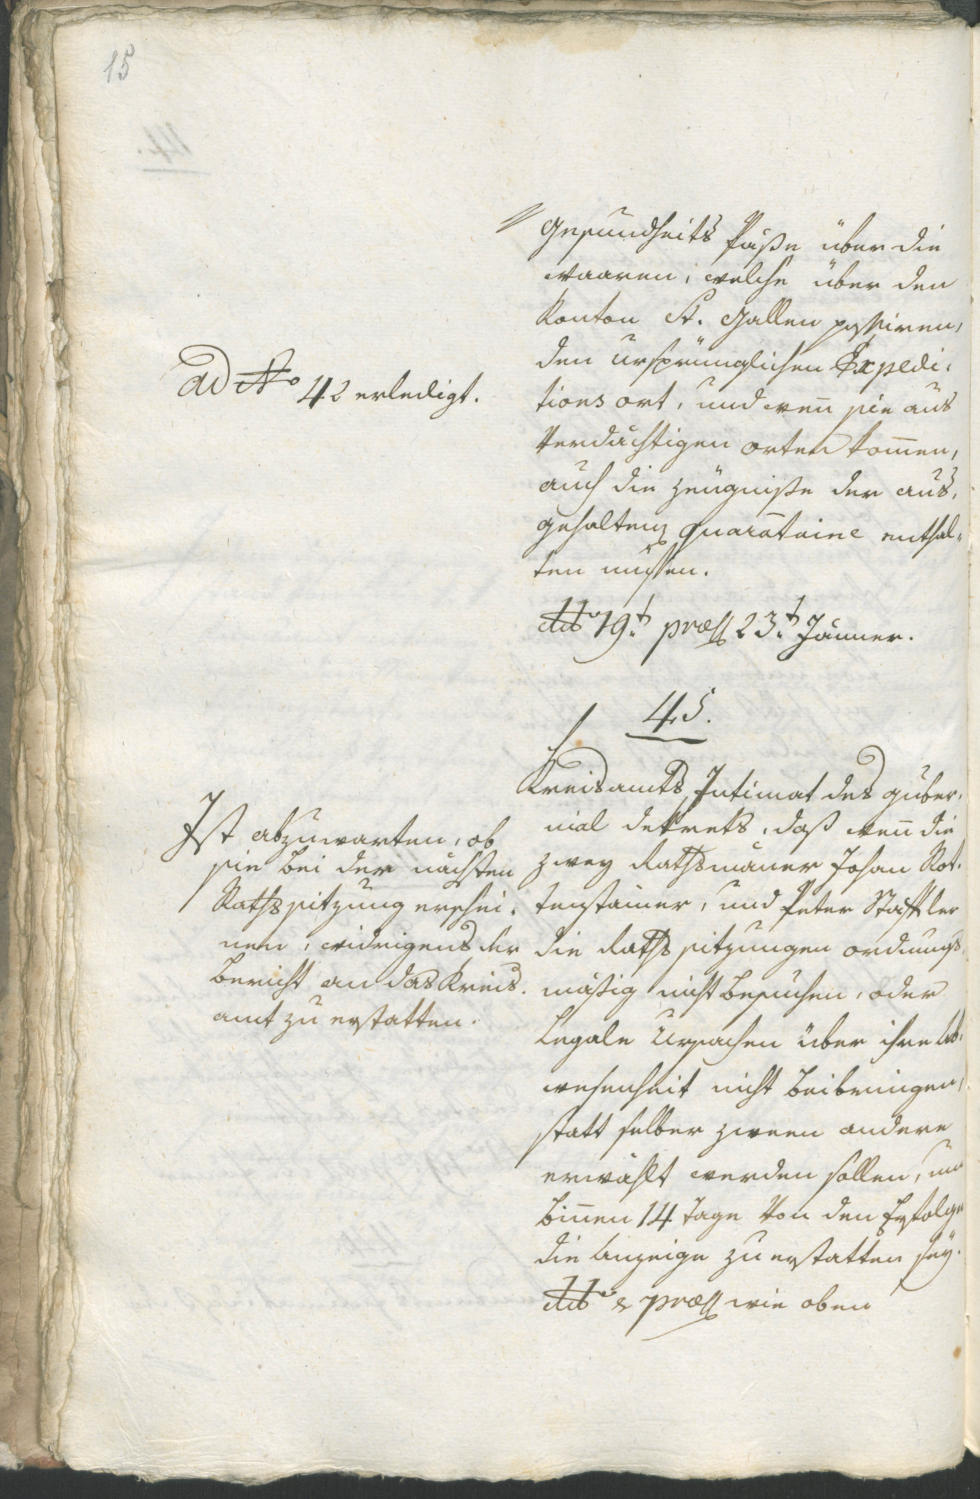 15
Gesundheits Päße über die
waaren, welche über den
Konton St. Gallen passiren,
den ursprünglichen Expedi-
tions ort, und weñ sie aus
Verdächtigen orten kom̃en,
auch die Zeügniße der aus-
gehaltenen quarataine enthal-
ten müssen.
ddo 19t. præs 23t. Jänner.
ad No 42 erledigt.
45.
Kreisamts Intimat des guber-
nial dekrets, daß weñ die
zwey Rathsmäner Johan Rot-
tensteiner, und Peter Staffler
die Raths sitzungen ordnungs-
mäßig nicht besuchen, oder
Legale Ursachen über ihre Ab-
wesenheit nicht beibringen,
statt selber zween andere
erwählt werden sollen, und
biñen 14 Tage von den Erfolge
die Anzeige zu erstatten seÿ.
ddo & præs wie oben
Ist abzuwarten, ob
sie bei der nächsten
Rathssitzung erschei-
nen, widrigens der
Bericht an das Kreis-
amt zu erstatten.